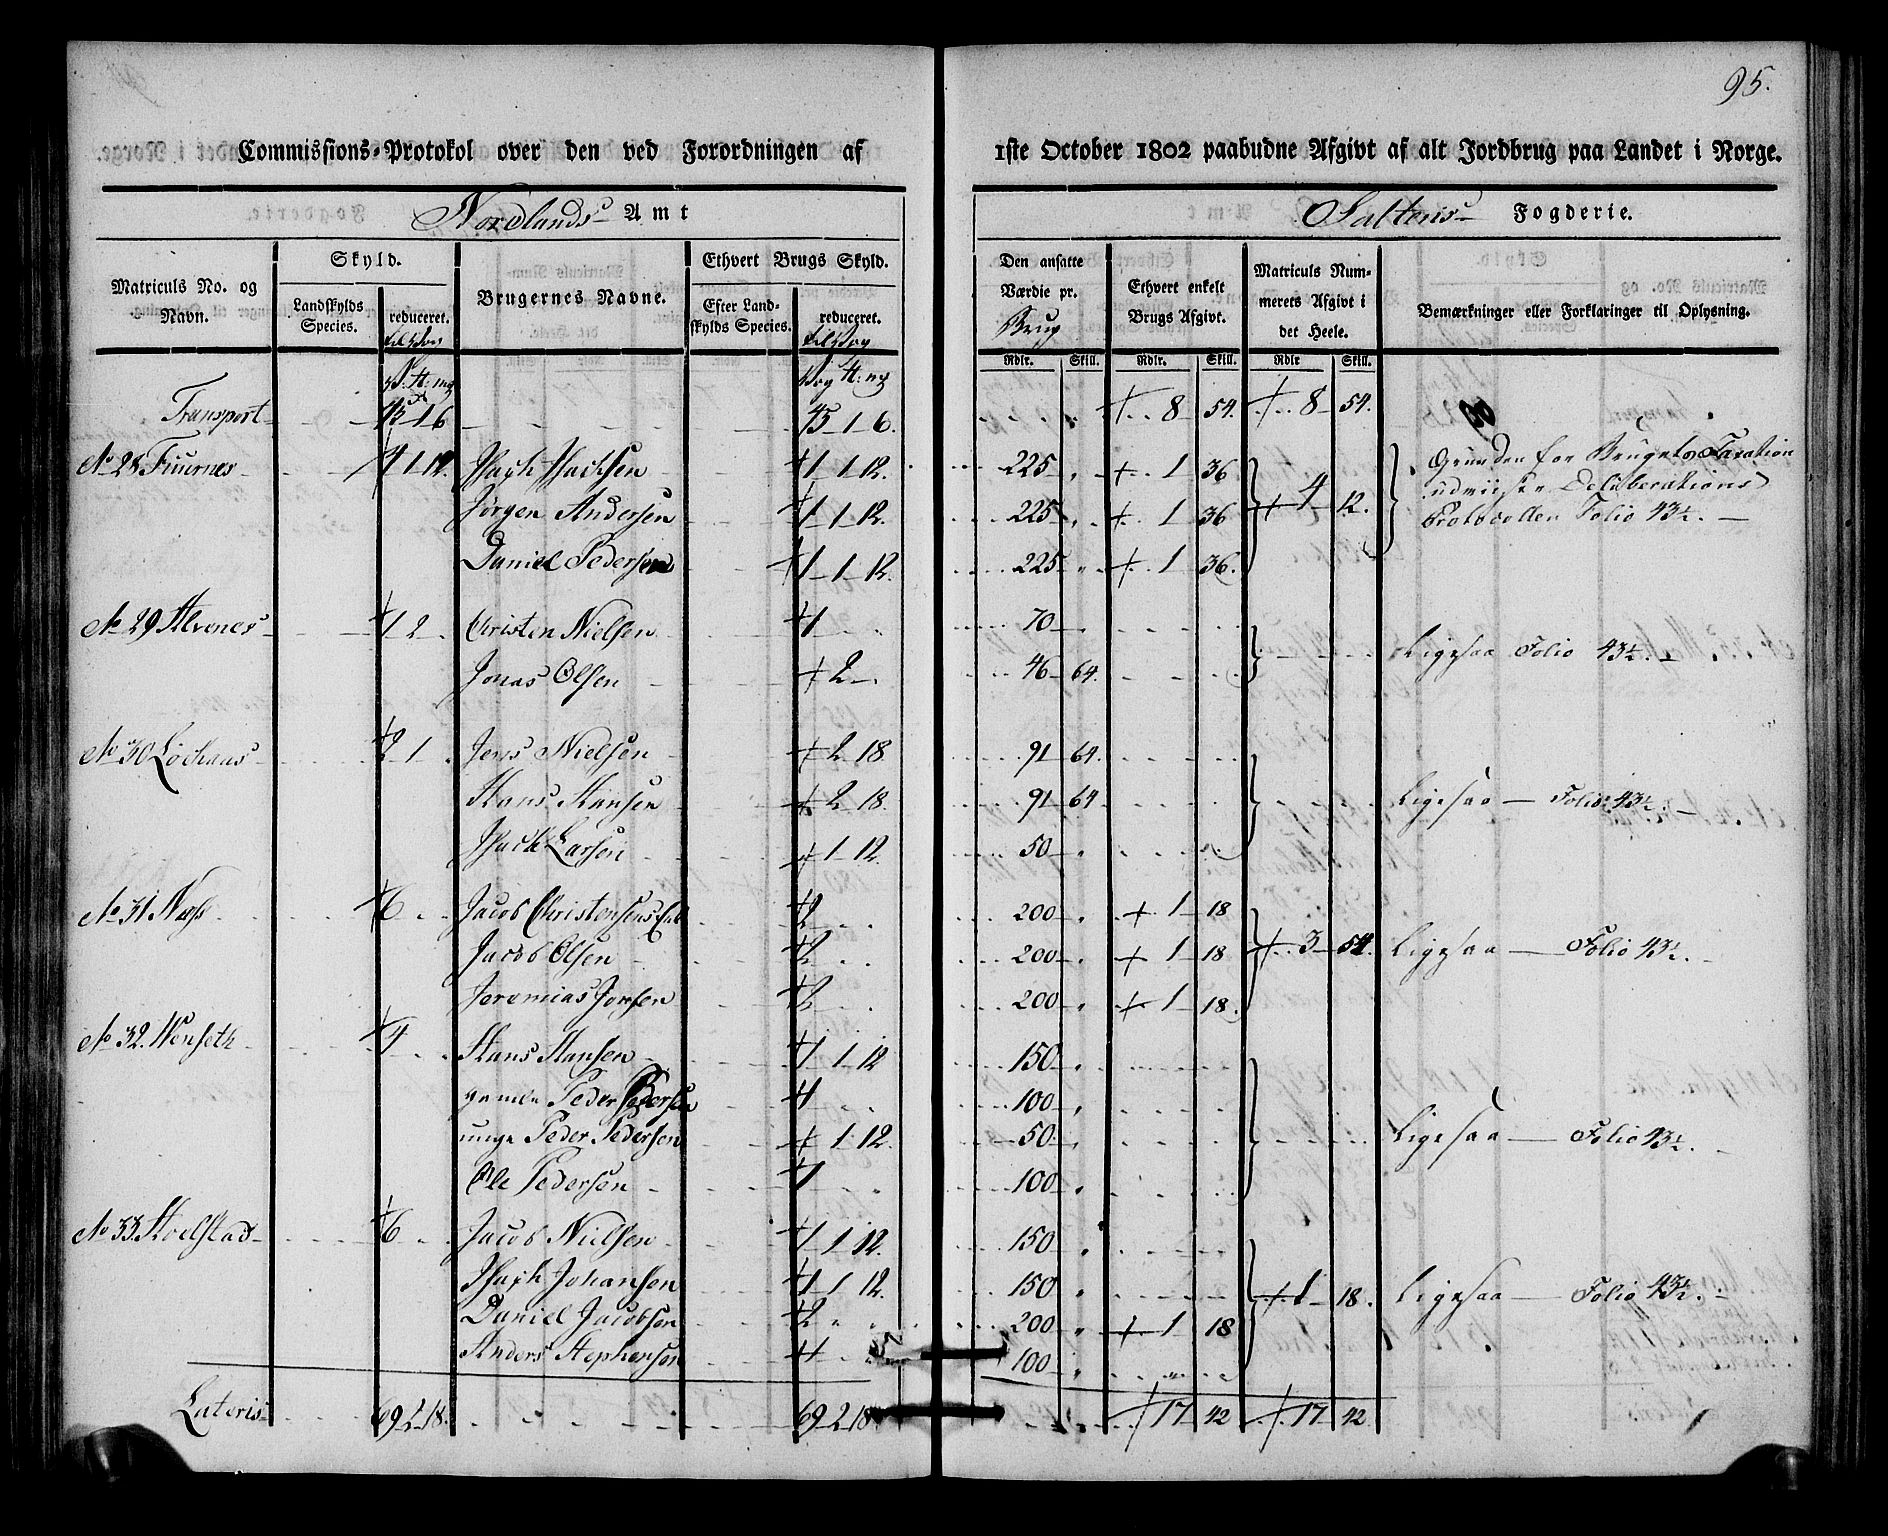 95.
Commissions-Protokol over den ved Forordningen af 1ste October 1802 paabudne Afgivt af alt Jordbrug paa Landet i Norge.
Nordlands Amt Saltens Fogderie.
Matriculs No. og Navn. Skyld. Brugernes Navne. Ethvert Brugs Skyld. Den ansatte Værdie pr. Brug Ethvert enkelt Brugs Afgivt. Matriculs Nummerets Afgivt i det Heele. Bemærkninger eller Forklaringer til Oplysning.
Landskylds Species. reduceret. Efter Landskylds Species. reduceret.
Rdlr. Skill. Rdlr. Skill. Rdlr Skill.
Transport 45 1 6 45 1 6. 8 54. 8 54.
No 28 4 1 12. Isach Isachsen 1 1 12. 225 1 36 Grunden for Brugets Taxation
Jörgen Andersen 1 1 12. 225 1 36 4 12. udviiser Deliberations
Protocollen Folio 43½.
Daniel Pedersen 1 1 12. 225 1 36.
No 29 Alvenes 1 2 Christen Nielsen 1 70
Jonas Olsen 2 46 64. Ligesaa Folio 43½.
No 30 2 1 Jens Nielsen 2 18 91 64.
Hans Hansen 2 18. 91 64 Ligesaa Folio 43½.
Isach Larsen 1 12. 50
No 31 Næss 6 Jacob Christensens 2 200 1 18
Jacob Olsen 2 200 1 18 3 54. Ligesaa Folio 43½.
Jeremias Jensen 2 200 1 18.
No 32. Wenseth 4 Hans Hansen 1 1 12 150
gamle Peder Pedersen 1 100
unge Peder Pedersen 1 12. 50 Ligesaa Folio 43½.
Ole Pedersen 1 100
No 33. 6 Jacob Nielsen 1 1 12. 150
Isach Johansen 1 1 12. 150 1 18. Ligesaa Folio 43½.
Daniel Jacobsen 2 200 1 18
Anders Stephensen 1 100
Lateris 69 2 18. 69 2 18 17 42 17 42